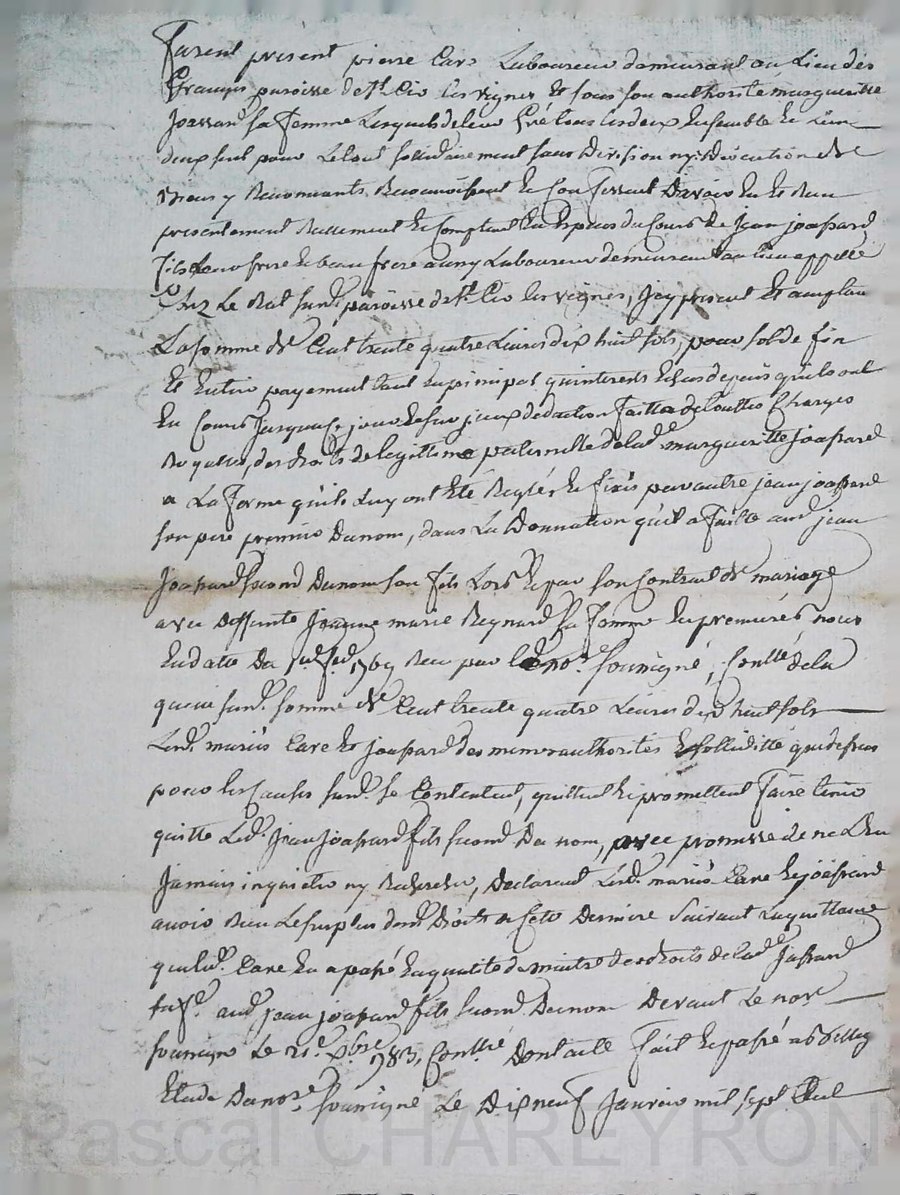 furent présent pierre Care Laboureur demeurant au Lieu des
françois paroisse de St. Cir les vignes Et sous son authorité margueritte
Joassard sa femme Lesquels de leur gré tous les deux Ensemble Et L'un
deux seul pour Letout sollidairement sans Division ny Discution de
Biens y Renoncants, Reconnoissent Et Confessent D'avoir Eu Et Reçu
presentement Reellement Et Comptant En Espèces du Cours de Jean joassard
fils Leur frere Et beau frere aussy Laboureur demeurant au lieu appellé
Chez Le Rat susd. paroisse de St. Cir les vignes, Icy présent Et acceptant
La somme de Cent trente quatre Livres dix huit sols, pour solde fin
Et Entier payement tant En principal qu'interets Echus depuis qu'ils ont
Eu Cours Jusqu'à ce jour deduction faitte de touttes Charges
Royalles, des droits de legittime paternelle de lad. margueritte Joassard
a La forme qu'ils Luy ont Eté Reglés Et fixés par autre jean joassard
son pere premier Dunom, dans La Donnation qu'il a faitte aud. jean
Joassard second Dunom son fils Lors Et par son Contrat de mariage
avec Deffunte Jeanne marie Reynard sa femme En premieres noces
En datte Du 1769 Reçu par Led. nore. souvigné, Contllé de la
quelle susd. somme de Cent trente quatre Livres dix huit sols
Lesd. mariés Care Et joassard des memes authorités Et solliditté que dessus
pour les Causes susd. se Contentent, quittent Et promettent faire tenir
quitte Led. Jean Joassard fils second Du nom, avec promesse de ne L'en
Jamais inquietter ny Rechercher, Declarant Lesd. mariés Care Et joassard
avoir Reçu Le surplus desd. Droits a Cette Derniere suivant La quittance
que led. Care En a passé En qualité de maitre des droits de lad. Joassard
sa fe. aud. jean joassard fils second Dunom Devant Le nore
souvigné Le 21e. Xbre 1783, Contllé Dont acte fait Et passé a
Etude Du nore. souvigné Le Dix neuf Janvier mil sept Cent
Pascal CHAREYRON